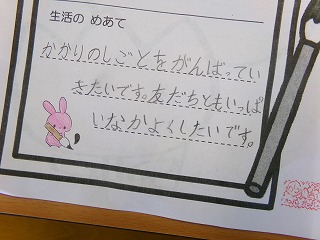 生活の めあて
かかりのしごとをがんばってい
きたいです。友だちともいっぱ
いなかよくしたいです。